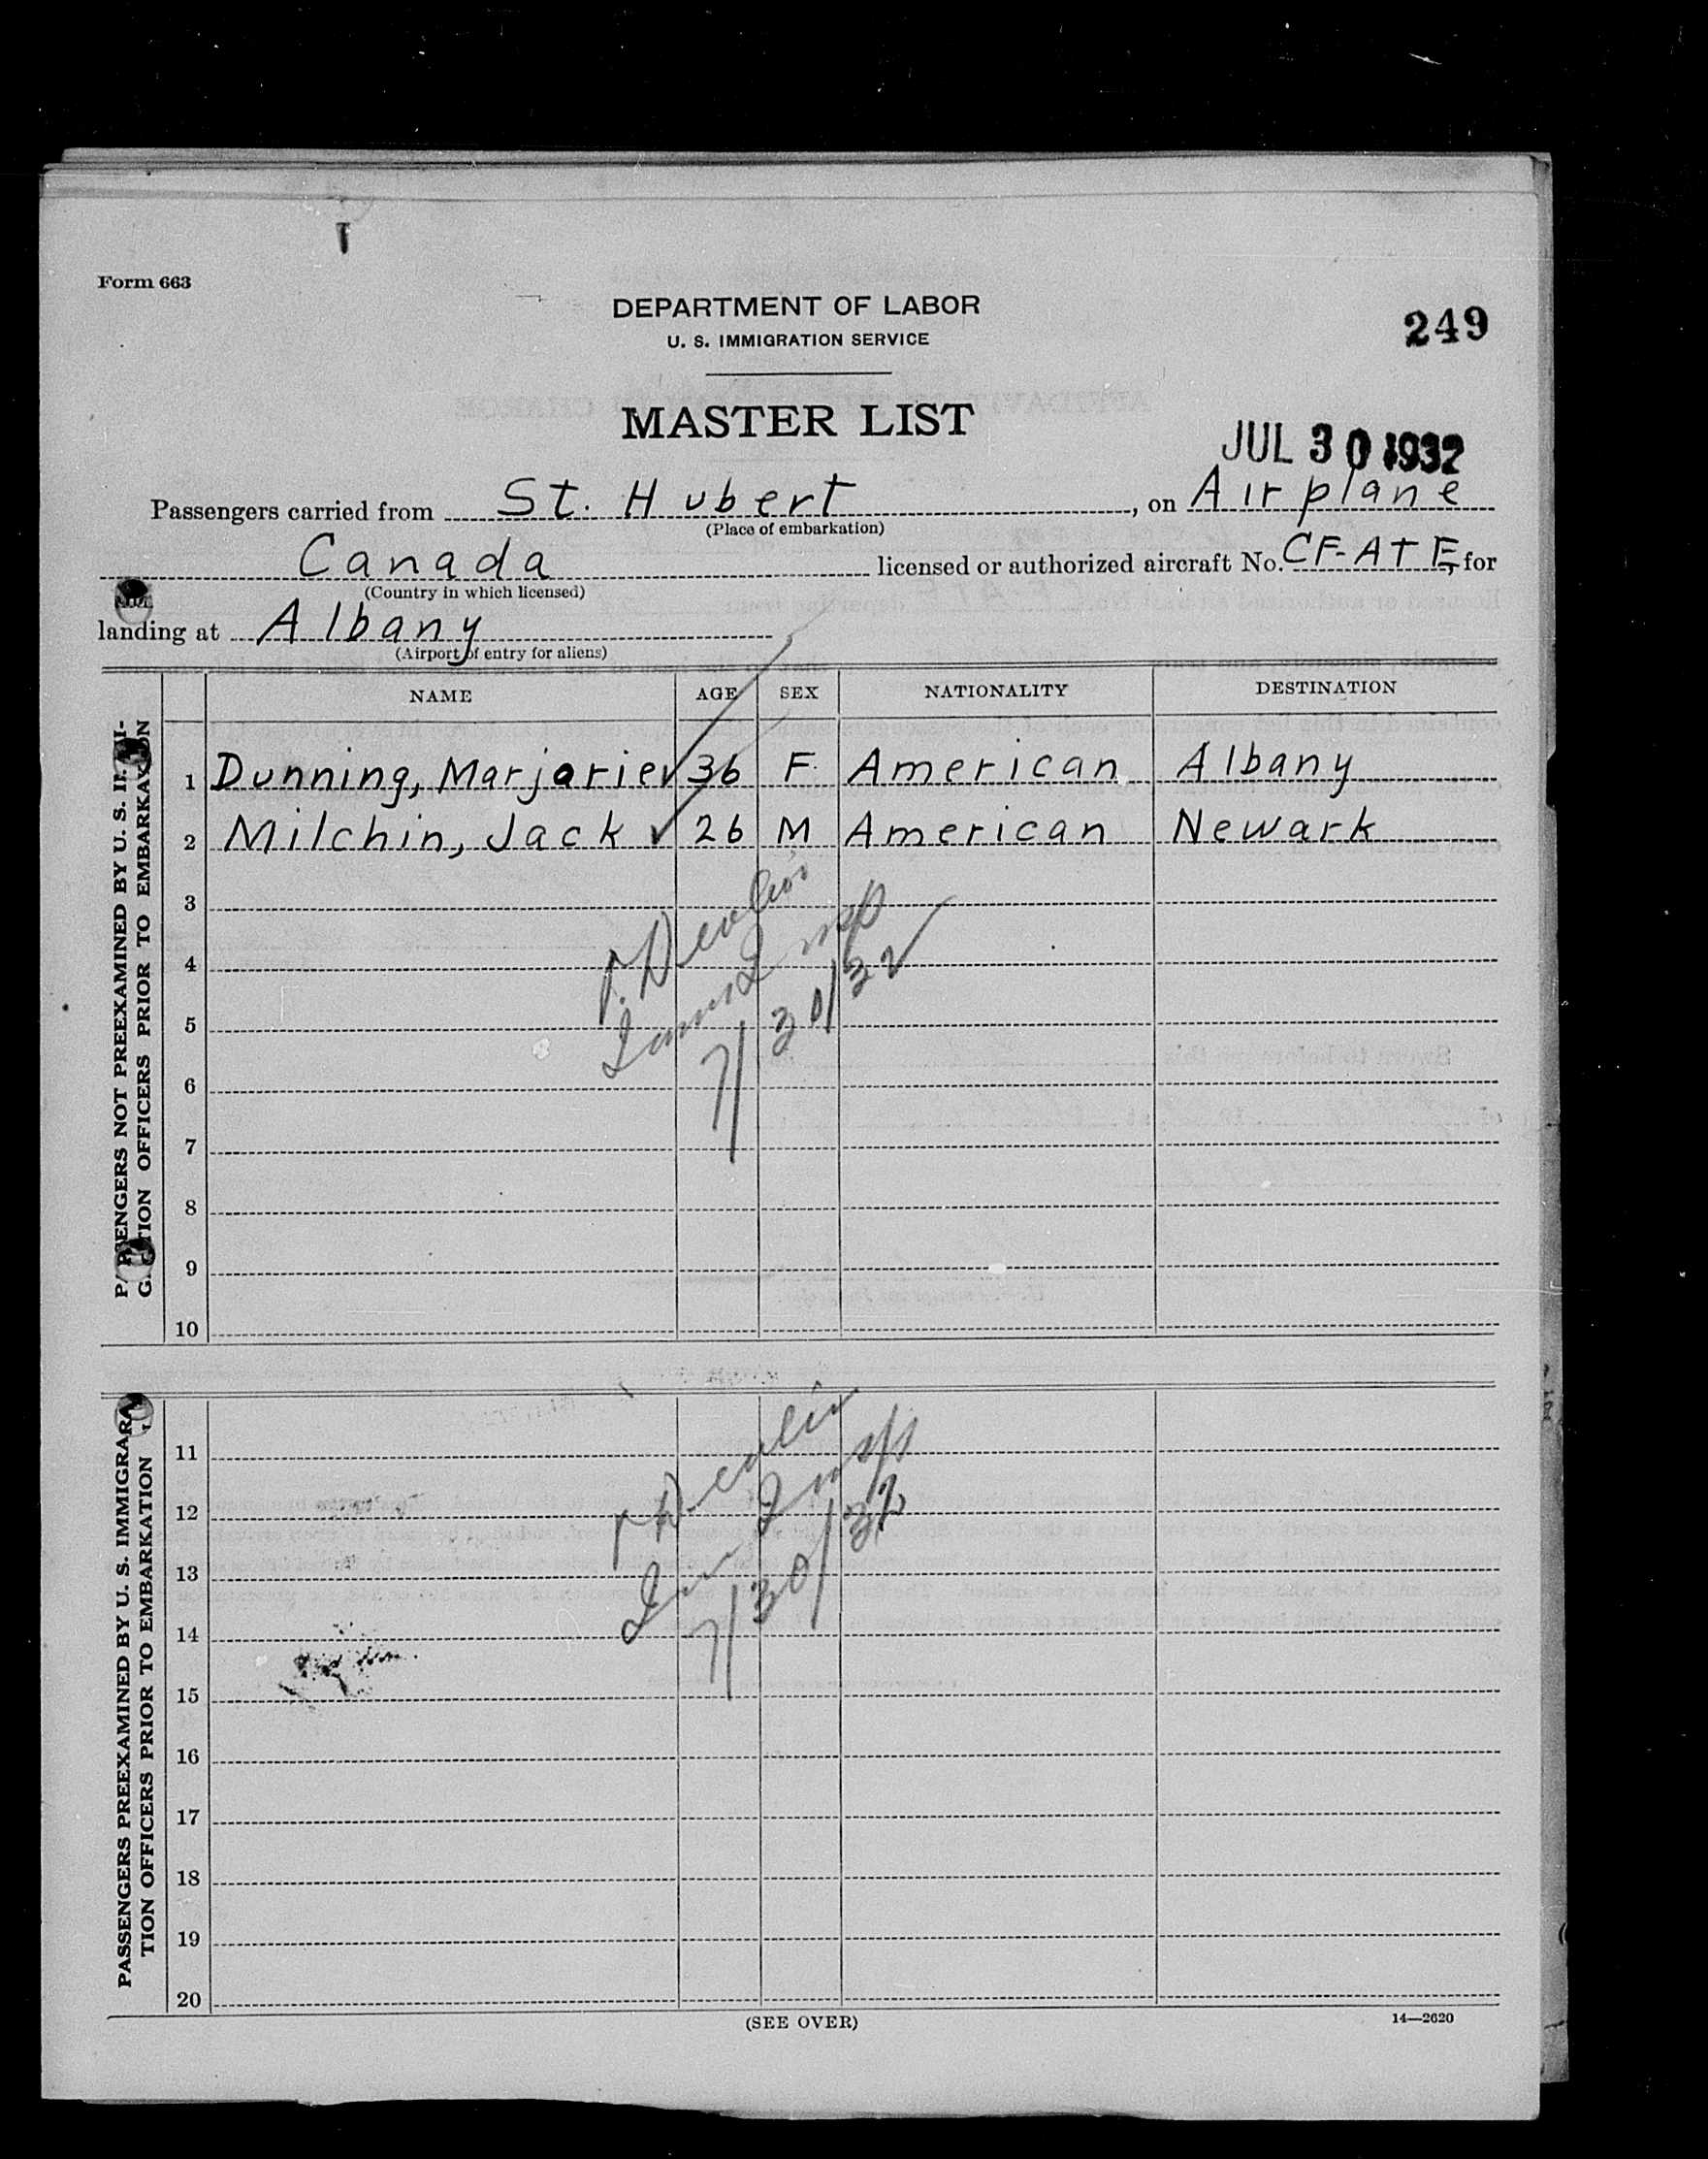 Form 663
DEPARTMENT OF LABOR
U. S. IMMIGRATION SERVICE
249
MASTER LIST
JUL 30 1932
Passengers carried from St. Hubert, on Airplane
(Place of embarkation)
Canada licensed or authorized aircraft No. CF-ATE, for
(Country in which licensed)
landing at Albany
(Airport of entry for aliens)
NAME AGE SEX NATIONALITY DESTINATION
PASSENGERS NOT PREEXAMINED BY U. S. IMMI-
GRATION OFFICERS PRIOR TO EMBARKATION
1 Dunning, Marjorie ✓ 36 F. American Albany
2 Milchin, Jack ✓ 26 M American Newark
3
4
5
6
7
8
9
10
Devlin
Insp
7/30/32
PASSENGERS PREEXAMINED BY U. S. IMMIGRA-
TION OFFICERS PRIOR TO EMBARKATION
11
12
13
14
15
16
17
18
19
20
Devlin
Insp
7/30/32
(SEE OVER)
14—2620